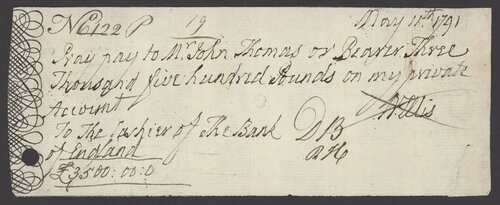 No 6122 P 19 May 10th 1791
Pray pay to Mr. John Thomas or Bearer Three
Thousand five hundred Pounds on my private
Account
Willis
To The Cashier of The Bank
of England
DB
£3500:00:0